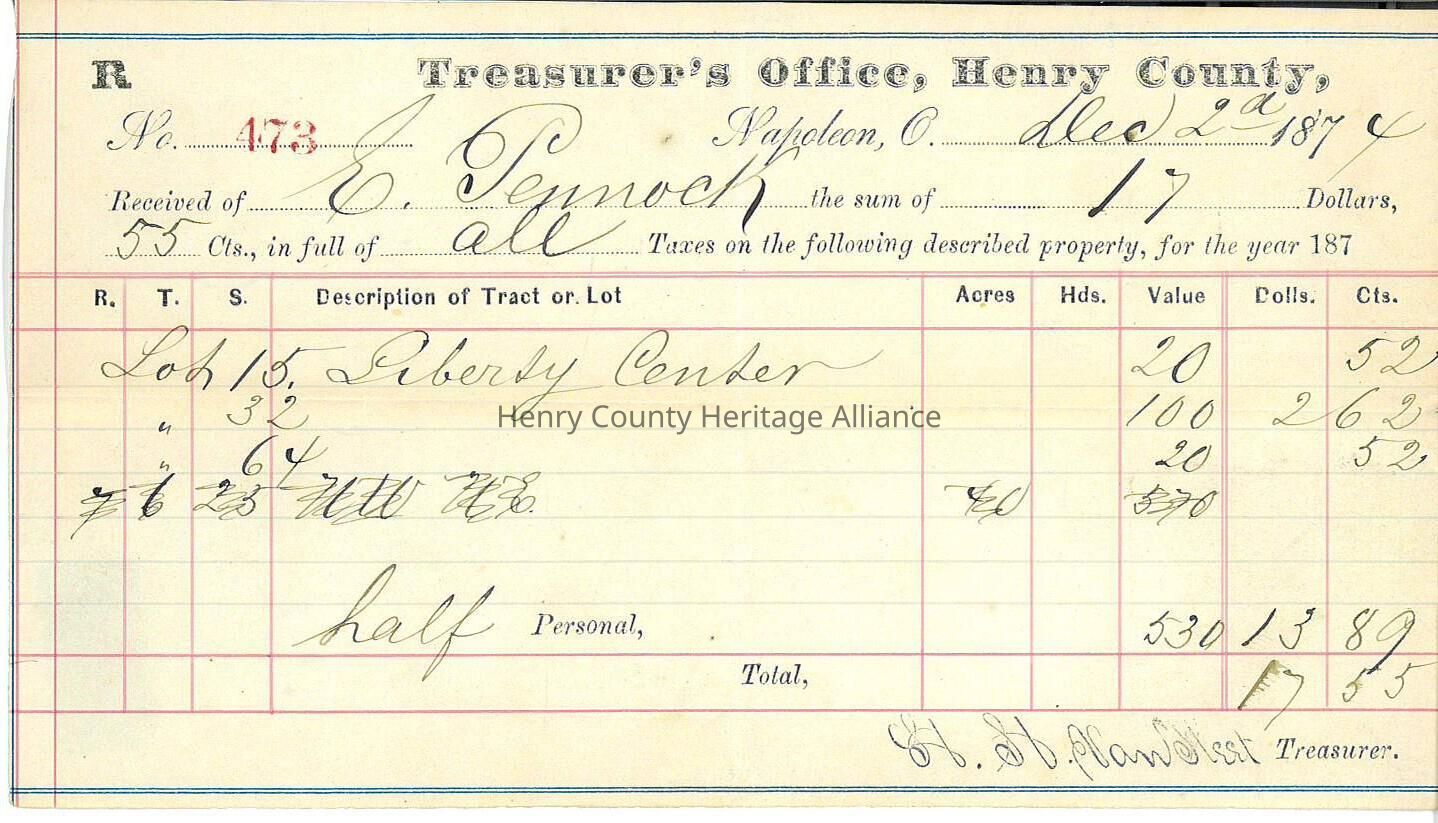 R Treasurer's Office, Henry County,
No. 473 Napoleon, O. Dec 2d 1874
Received of E. Pennock the sum of 17 Dollars,
55 Cts., in full of all Taxes on the following described property, for the year 187
R. T. S. Description of Tract or Lot Acres Hds. Value Dolls. Cts.
Lot 15. Liberty Center 20 52
" 32 100 2 62
Henry County Heritage Alliance
" 64 20 52
6 23 40
half Personal, 530 13 89
Total, 17 55
H. H. Treasurer.